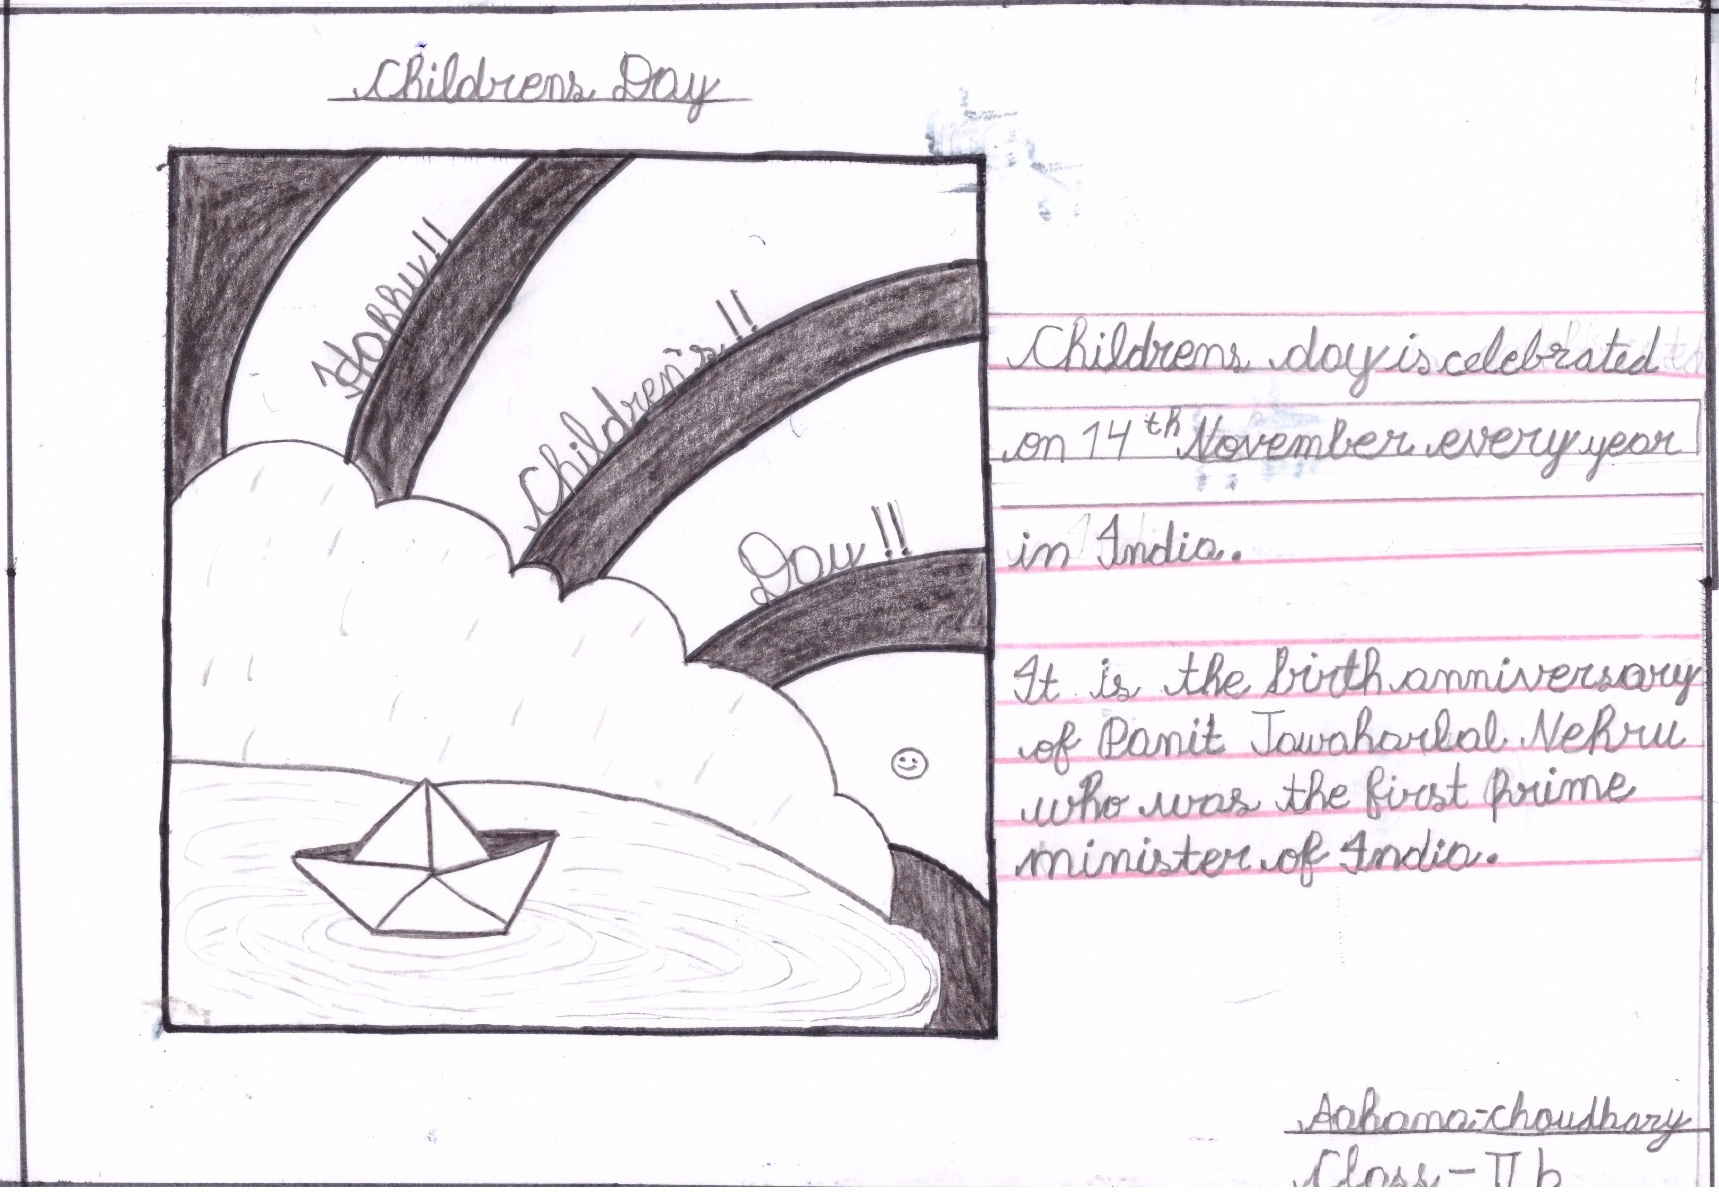 Childrens Day
Happy!!
Children's!!
Day!!
Childrens day is celebrated
on 14th November every year
in India.
It is the birth anniversary
of Panit Jawaharlal Nehru
who was the first prime
minister of India.
Aahana-choudhary
Class - II b